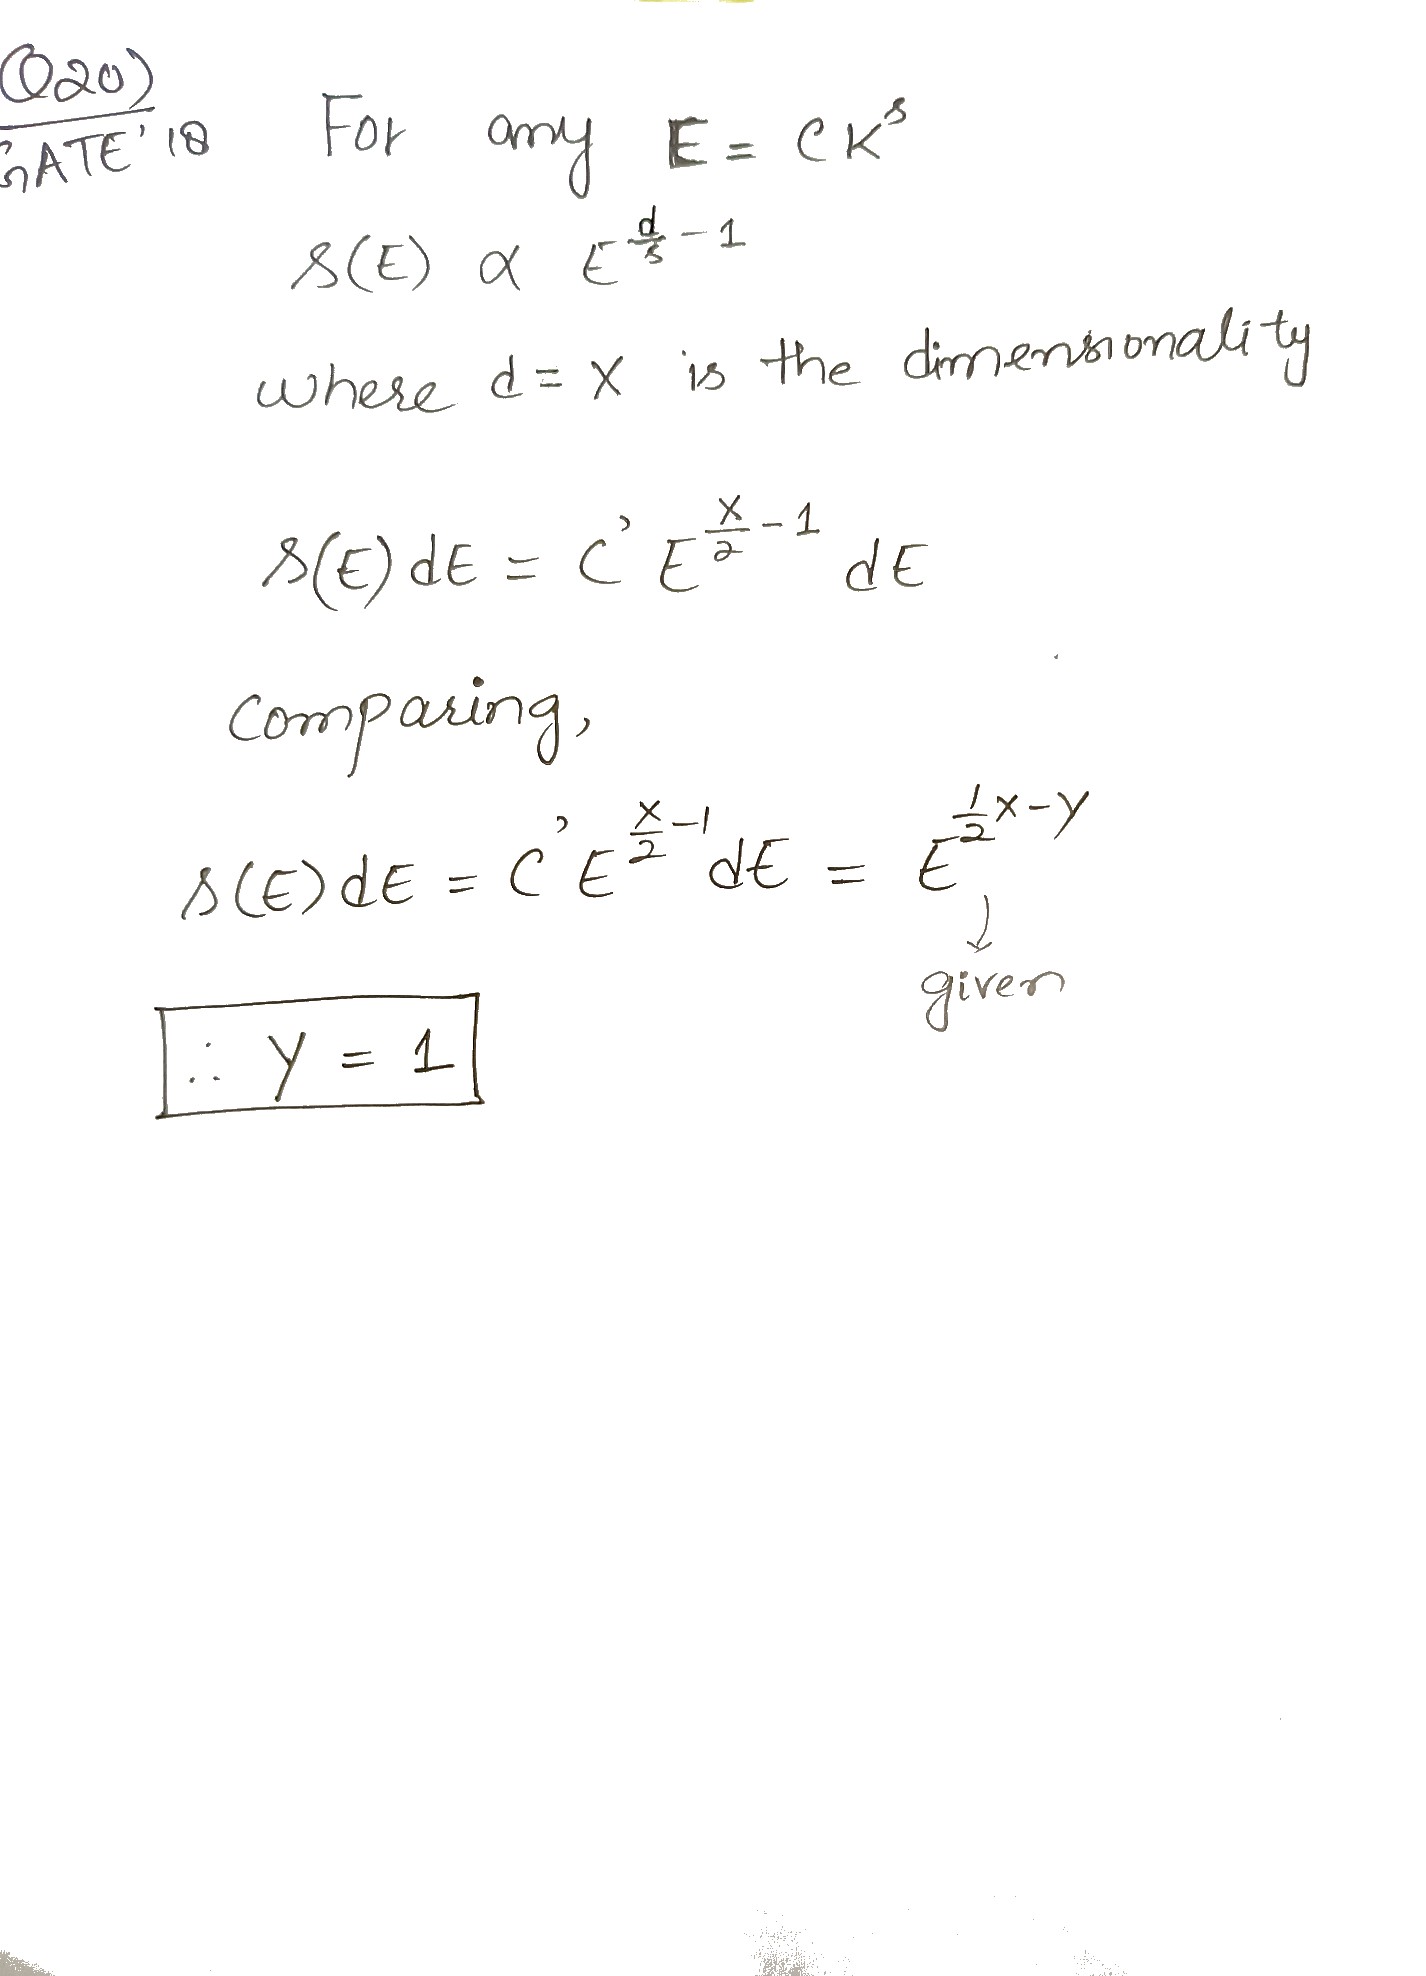 Q20)
GATE'18 For any E = CK^s
s(E) α E^{d/s - 1}
where d = x is the dimensionality
s(E) dE = C' E^{x/2 - 1} dE
comparing,
s(E) dE = C' E^{x/2 - 1} dE = E^{1/2 x - y}
↓
given
∴ y = 1